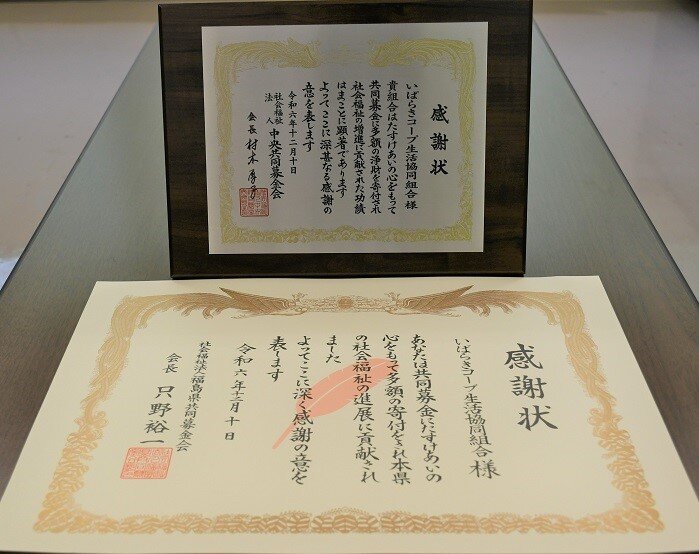 感謝状
いばらきコープ生活協同組合 様
貴組合はたすけあいの心をもって
共同募金に多額の浄財を寄付され
社会福祉の増進に貢献された功績
はまことに顕著であります
よってここに深甚なる感謝の
意を表します
令和六年十二月十日
社会福祉法人 中央共同募金会
会長 村木 厚子
感謝状
いばらきコープ生活協同組合 様
あなたは共同募金にたすけあいの
心をもって多額の寄付をされ本県
の社会福祉の進展に貢献され
ました
よってここに深く感謝の意を
表します
令和六年十二月十日
社会福祉法人福島県共同募金会
会長 只野裕一